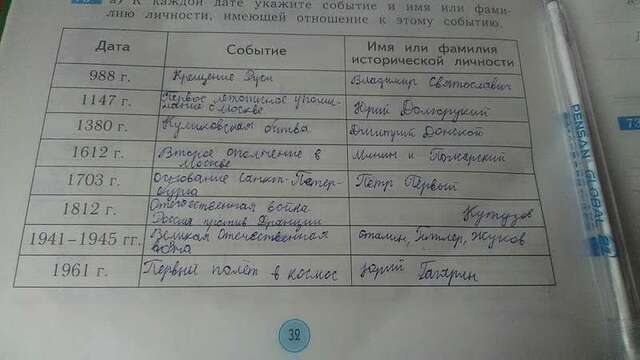 а) К каждой дате укажите событие и имя или фами-
лию личности, имеющей отношение к этому событию.
Дата Событие Имя или фамилия
исторической личности
988 г. Крещение Руси Владимир Святославич
1147 г. Первое летописное упоми-
нание о Москве Юрий Долгорукий
1380 г. Куликовская битва Дмитрий Донской
1612 г. Второе ополчение в
Москве Минин и Пожарский
1703 г. Основание Санкт-Петер-
бурга Петр Первый
1812 г. Отечественная война
Россия против Франции Кутузов
1941–1945 гг. Великая Отечественная
война Сталин, Гитлер, Жуков
1961 г. Первый полёт в космос Юрий Гагарин
32
PENSAN GLOBAL